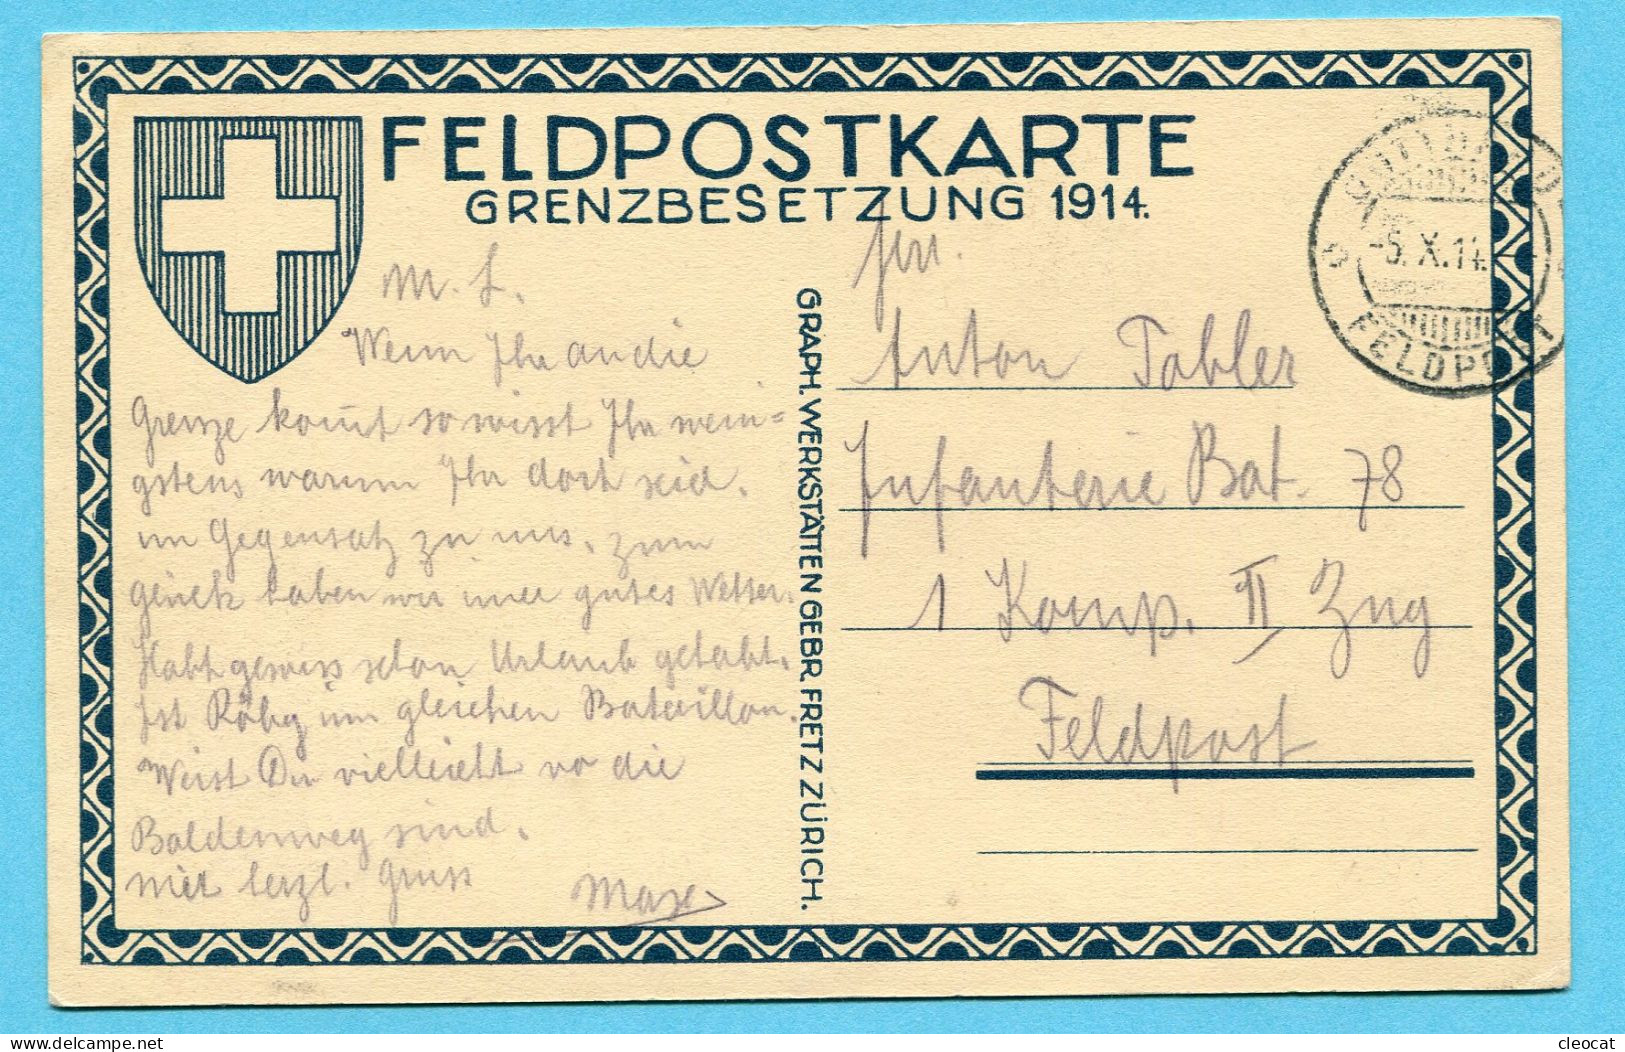 FELDPOSTKARTE
GRENZBESETZUNG 1914.
-5. X. 14.
FELDPOST
M. L.
Wenn Ihr an die
Grenze kom̄t so wisst Ihr wenin=
gstens warum Ihr dort seid.
im Gegensatz zu uns. Zum
glück haben wir imer gutes Wetter.
Habt gewiss schon Urlaub gehabt.
Ist Röby im gleichen Bataillon.
Weist Du vielleicht wo die
Baldenweg sind.
Mit herzl. Gruss
Max
GRAPH. WERKSTÄTTEN GEBR. FRETZ ZÜRICH.
Hrn.
Anton Tobler
Infanterie Bat. 78
1 Komp. II Zug
Feldpost
delcampe.net
cleocat